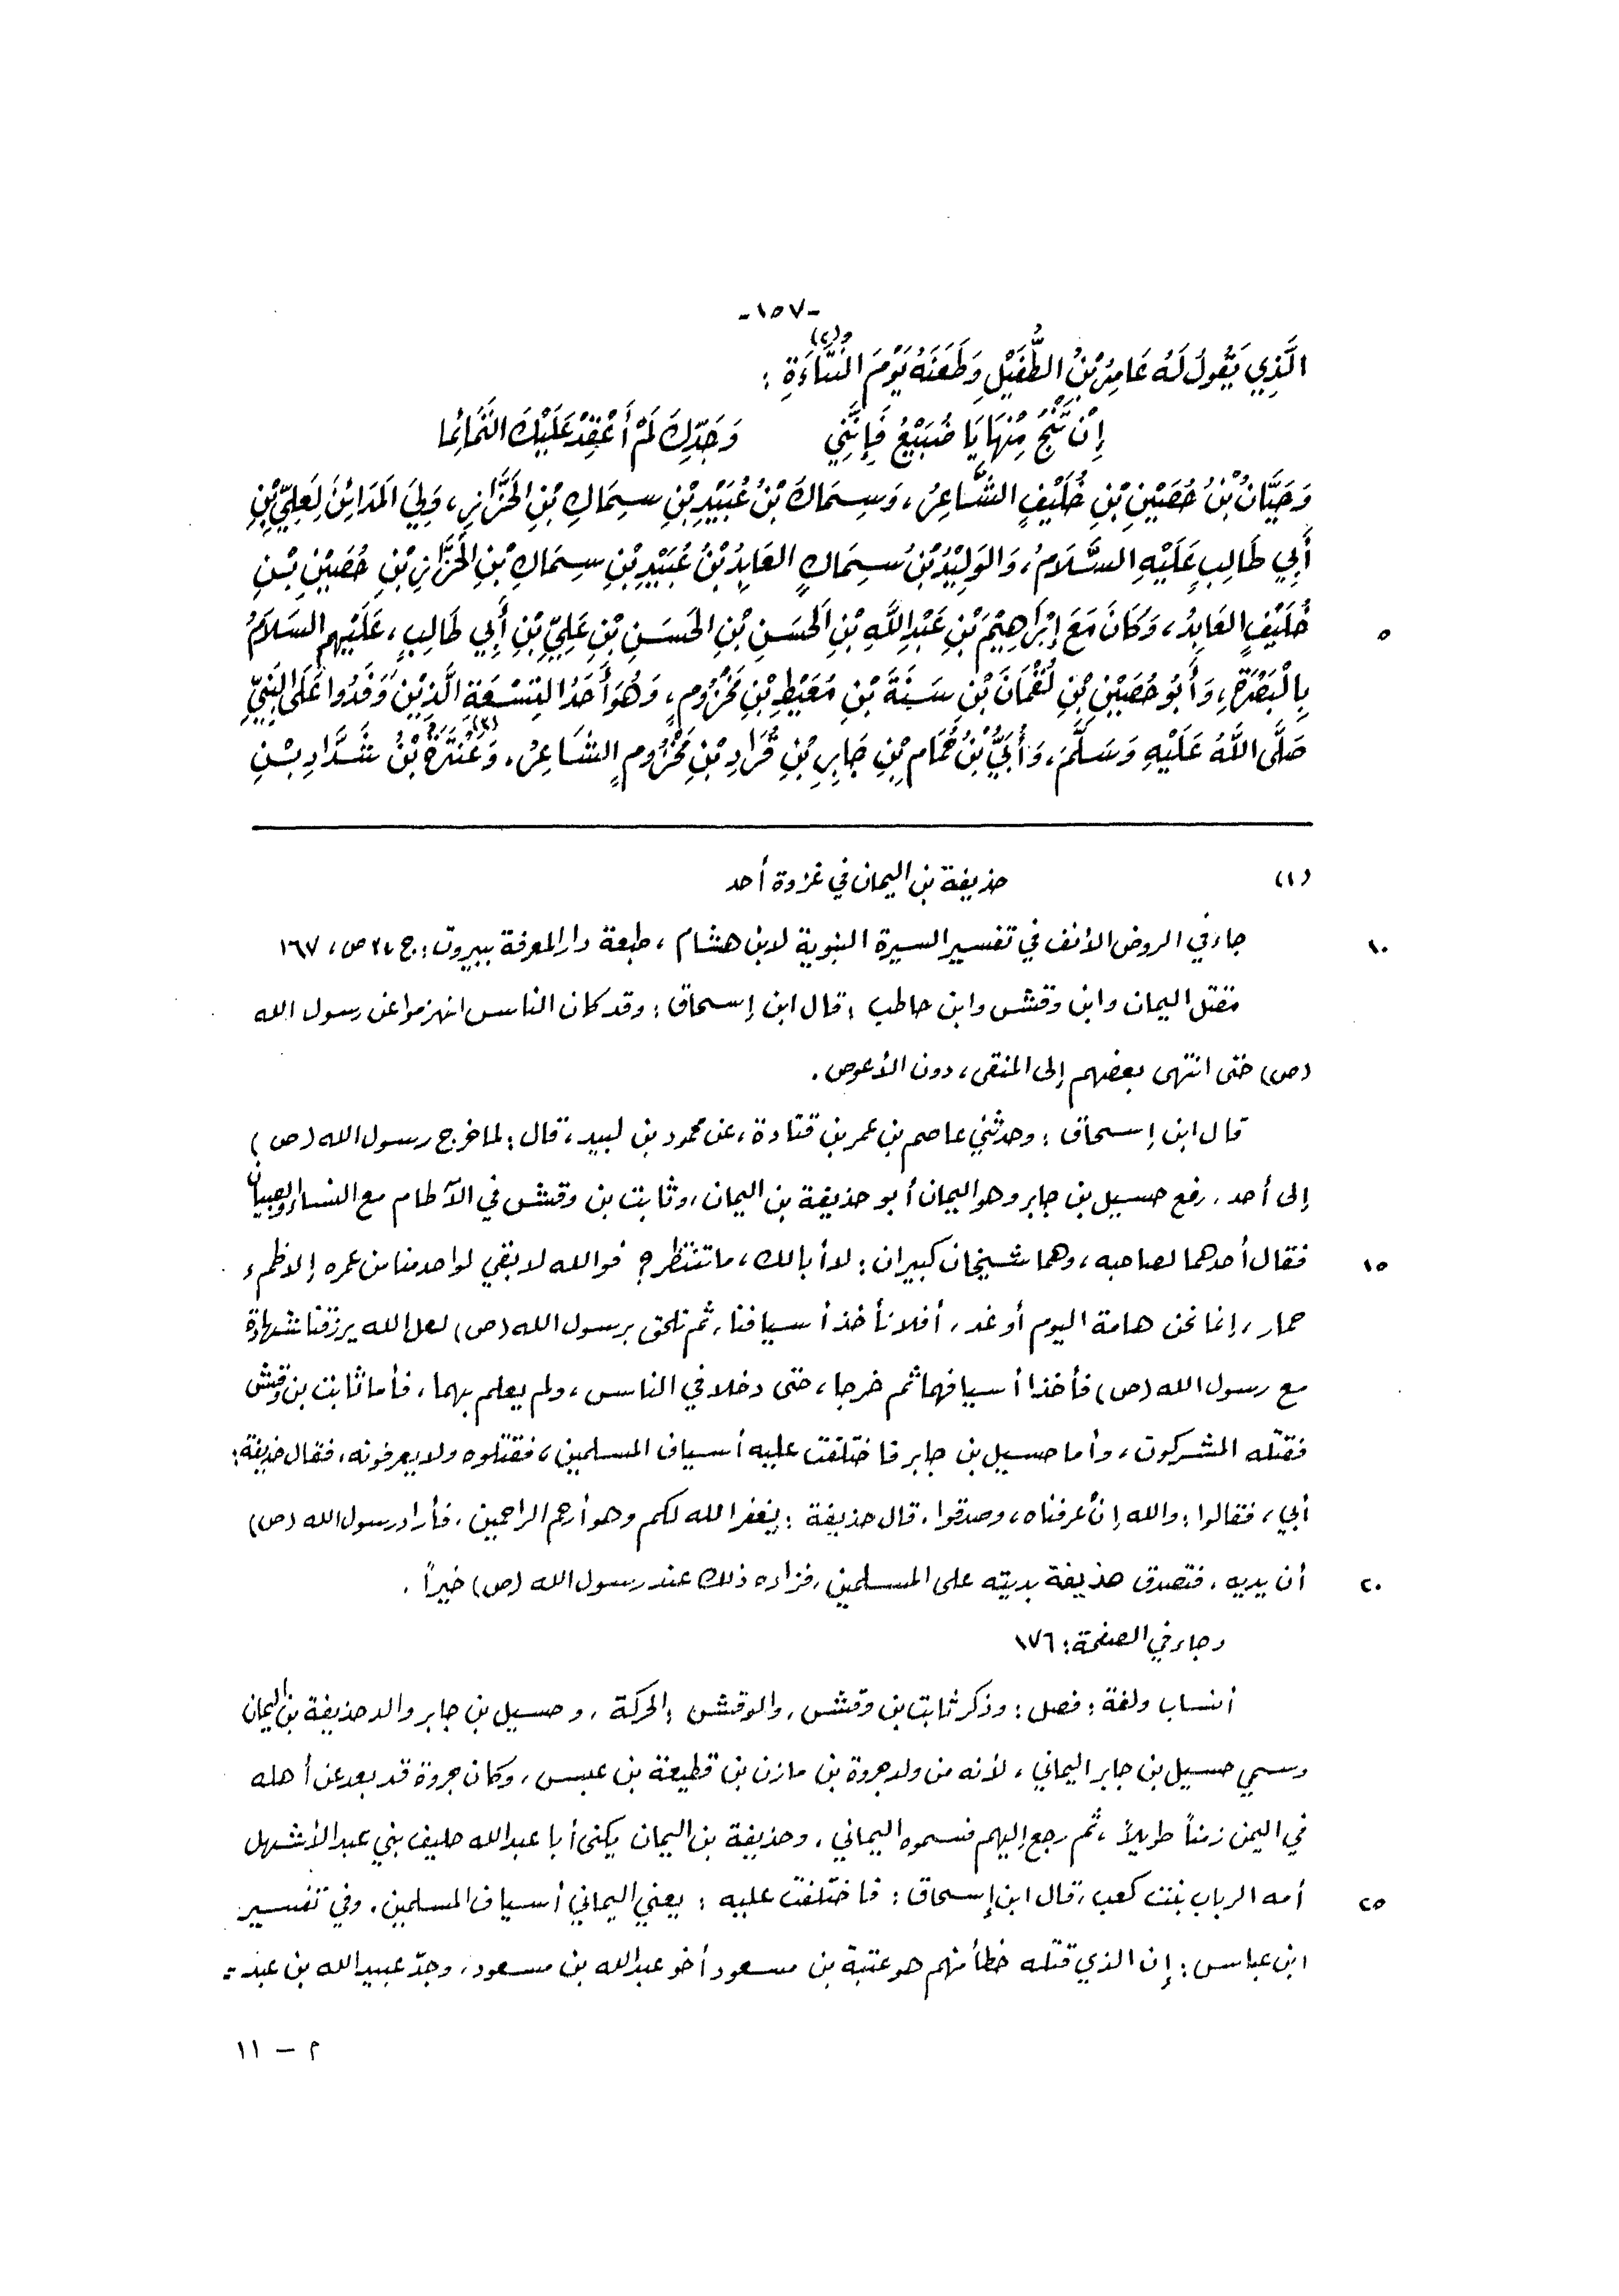 -١٥٧-
الَّذِي يَقُولُ لَهُ عَامِرُ بْنُ الطُّفَيْلِ وَطَعَنَهُ يَوْمَ النَّتَاءَةِ (٢) :
إِنْ تَنْجُ مِنْهَا يَا ضُبَيْعُ فَإِنَّنِي وَجَدِّكَ لَمْ أَعْقِدْ عَلَيْكَ التَّمَائِما
وَحَيَّانُ بْنُ حُصَيْنِ بْنِ خُلَيْفٍ الشَّاعِرُ، وَسِمَاكُ بْنُ عُبَيْدِ بْنِ سِمَاكِ بْنِ الحَزَّازِ، وَلِيَ المَدَائِنَ لِعَلِيِّ بْنِ
أَبِي طَالِبٍ عَلَيْهِ السَّلَامُ، وَالوَلِيْدُ بْنُ سِمَاكٍ العَابِدُ بْنُ عُبَيْدِ بْنِ سِمَاكِ بْنِ الحَزَّازِ بْنِ حُصَيْنِ بْنِ
٥ خُلَيْفٍ العَابِدُ، وَكَانَ مَعَ إِبْرَاهِيْمَ بْنِ عَبْدِ اللَّهِ بْنِ الحَسَنِ بْنِ الحَسَنِ بْنِ عَلِيِّ بْنِ أَبِي طَالِبٍ، عَلَيْهِم السَلَامُ
بِالْبَصْرَةِ، وَأَبُو حُصَيْنِ بْنِ لُقْمَانَ بْنِ سَنَةَ بْنِ مُعَيْطِ بْنِ مَخْزُومٍ، وَهُوَ أَحَدُ التِسْعَةِ الَّذِيْنَ وَفَدُوا عَلَى النَبِيِّ
صَلَّى اللَّهُ عَلَيْهِ وَسَلَّمَ، وَأُبَيُّ بْنُ حُمَامِ بْنِ جَابِرِ بْنِ قُرَادِ بْنِ مَخْزُومٍ الشَاعِرُ، وَعَنْتَرَةُ (٣) بْنُ شَدَّادِ بْنِ
(١) حذيفة بن اليمان في غزوة أحد
١٠ جاء في الروض الأنف في تفسير السيرة النبوية لابن هشام، طبعة دار المعرفة ببيروت: ج ٣، ص، ١٦٧
مقتل اليمان وابن وقش وابن حاطب : قال ابن إسحاق : وقد كان الناس انهزموا عن رسول الله
(ص) حتى انتهى بعضهم إلى المنقى، دون الأعوص.
قال ابن إسحاق : وحدثني عاصم بن عمر بن قتادة، عن محمود بن لبيد، قال: لما خرج رسول الله (ص)
إلى أحد، رفع حسيل بن جابر وهو اليمان أبو حذيفة بن اليمان، وثابت بن وقش في الآطام مع النساء والصبيان
١٥ فقال أحدهما لصاحبه، وهما شيخان كبيران: لا أبا لك، ما تنتظر؟ فوالله لا بقي لواحد منا من عمره إلا ظمء
حمار، إنما نحن هامة اليوم أو غد، أفلا نأخذ أسيافنا، ثم نلحق برسول الله (ص) لعل الله يرزقنا شهادة
مع رسول الله (ص) فأخذا أسيافهما ثم خرجا، حتى دخلا في الناس، ولم يعلم بهما، فأما ثابت بن وقش
فقتله المشركون، وأما حسيل بن جابر فاختلفت عليه أسياف المسلمين، فقتلوه ولا يعرفونه، فقال حذيفة:
أبي، فقالوا: والله إن عرفناه، وصدقوا، قال حذيفة : يغفر الله لكم وهو أرحم الراحمين، فأراد رسول الله (ص)
٢٠ أن يديه، فتصدق حذيفة بديته على المسلمين، فزاده ذلك عند رسول الله (ص) خيراً.
وجاء في الصفحة: ١٧٦
أنساب ولغة : فصل : وذكر ثابت بن وقش، والوقش : الحركة، وحسيل بن جابر والد حذيفة بن اليمان
وسمي حسيل بن جابر اليماني، لأنه من ولد جروة بن مازن بن قطيعة بن عبس، وكان جروة قد بعد عن أهله
في اليمن زمناً طويلاً، ثم رجع إليهم فسموه اليماني، وحذيفة بن اليمان يكنى أبا عبد الله حليف بني عبد الأشهل
٢٥ أمه الرباب بنت كعب، قال ابن إسحاق : فاختلفت عليه : يعني اليماني أسياف المسلمين، وفي تفسير
ابن عباس : إن الذي قتله خطأ منهم هو عتبة بن مسعود أخو عبد الله بن مسعود، وجدّ عبيد الله بن عبد =
م - ١١